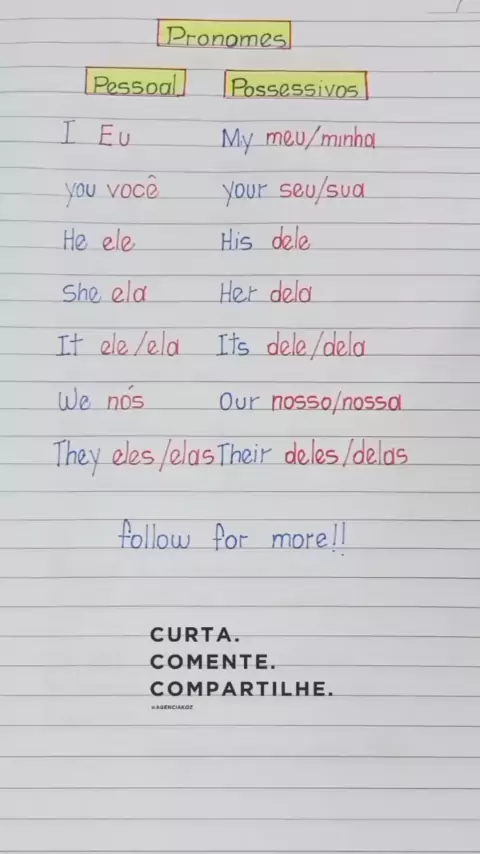 Pronomes
Pessoal Possessivos
I Eu My meu/minha
you você your seu/sua
He ele His dele
She ela Her dela
It ele/ela Its dele/dela
We nós Our nosso/nossa
They eles/elas Their deles/delas
follow for more!!
CURTA.
COMENTE.
COMPARTILHE.
@AGENCIAKOZ